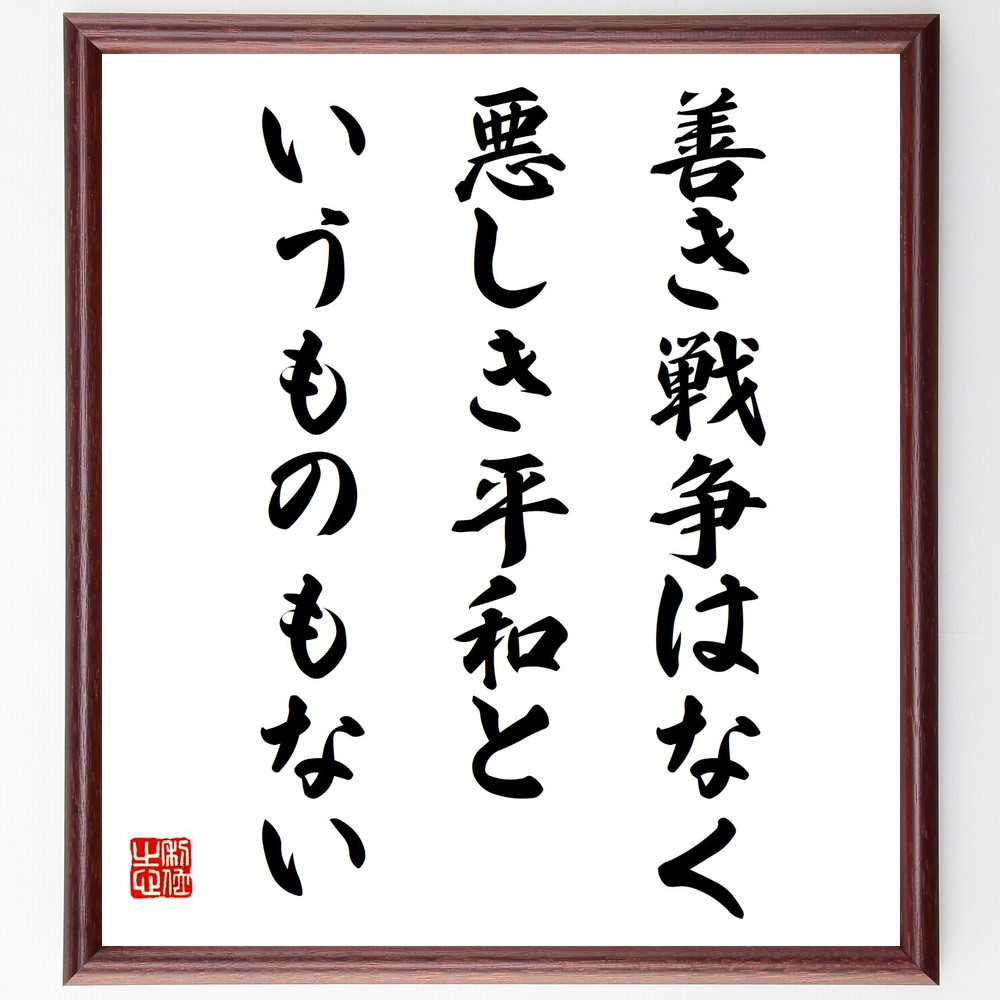 善き戦争はなく
悪しき平和と
いうものもない